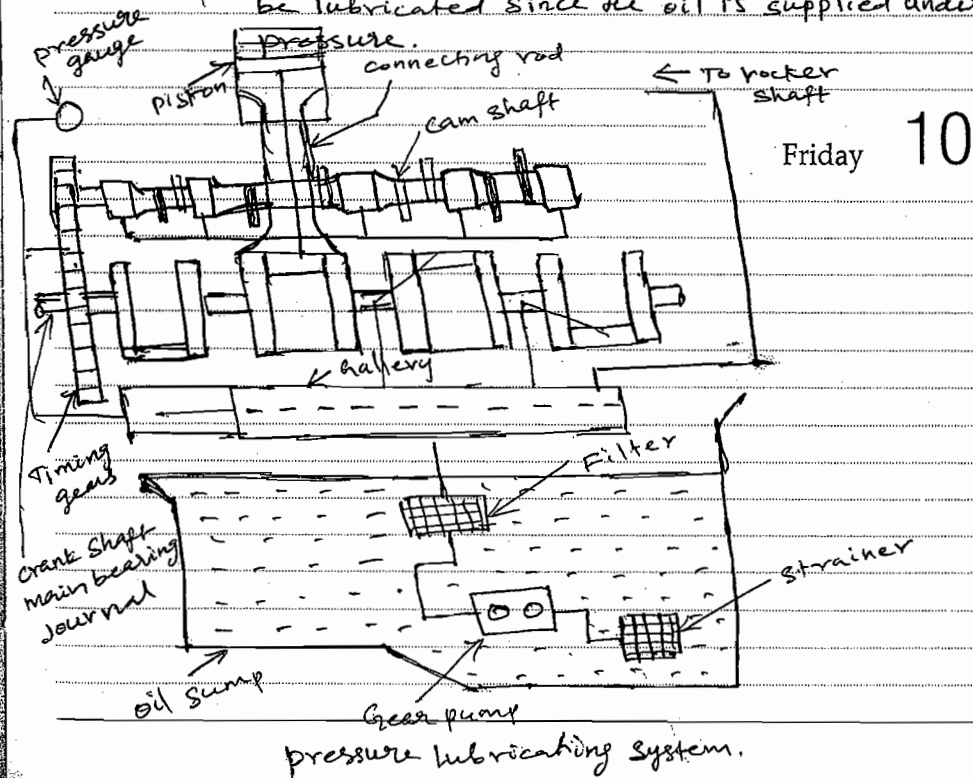 be lubricated since the oil is supplied under
pressure.
pressure
gauge
piston
connecting rod
← To rocker
shaft
cam shaft
Friday 10
Gallery
Timing
gears
Filter
crank shaft
main bearing
Journal
strainer
oil sump
Gear pump
pressure lubricating system.